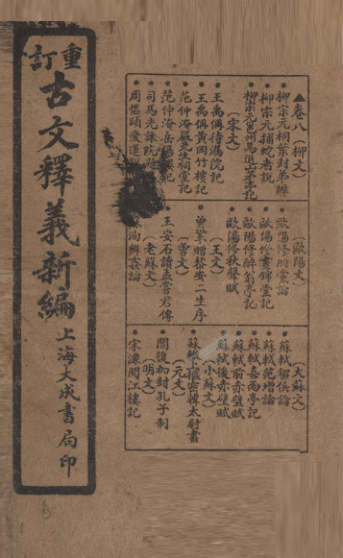 重訂
古文釋義新編
上海大成書局印
▲卷八（柳文）
柳宗元桐葉封弟辨
柳宗元捕蛇者說
（宋文）
王禹偁待漏院記
王禹偁黃岡竹樓記
司馬光諫院題
周惇頤愛蓮
（歐陽文）
歐陽修朋黨論
歐陽修晝錦堂記
歐陽修醉翁亭記
歐陽修秋聲賦
（王文）
曾鞏贈黎安二生序
（曾文）
王安石讀孟嘗君傳
（老蘇文）
蘇洵辨姦論
（大蘇文）
蘇軾留侯論
蘇軾范增論
蘇軾喜雨亭記
蘇軾前赤壁賦
蘇軾後赤壁賦
（小蘇文）
蘇轍上樞密韓太尉書
（元文）
閻復加封孔子制
（明文）
宋濂閱江樓記